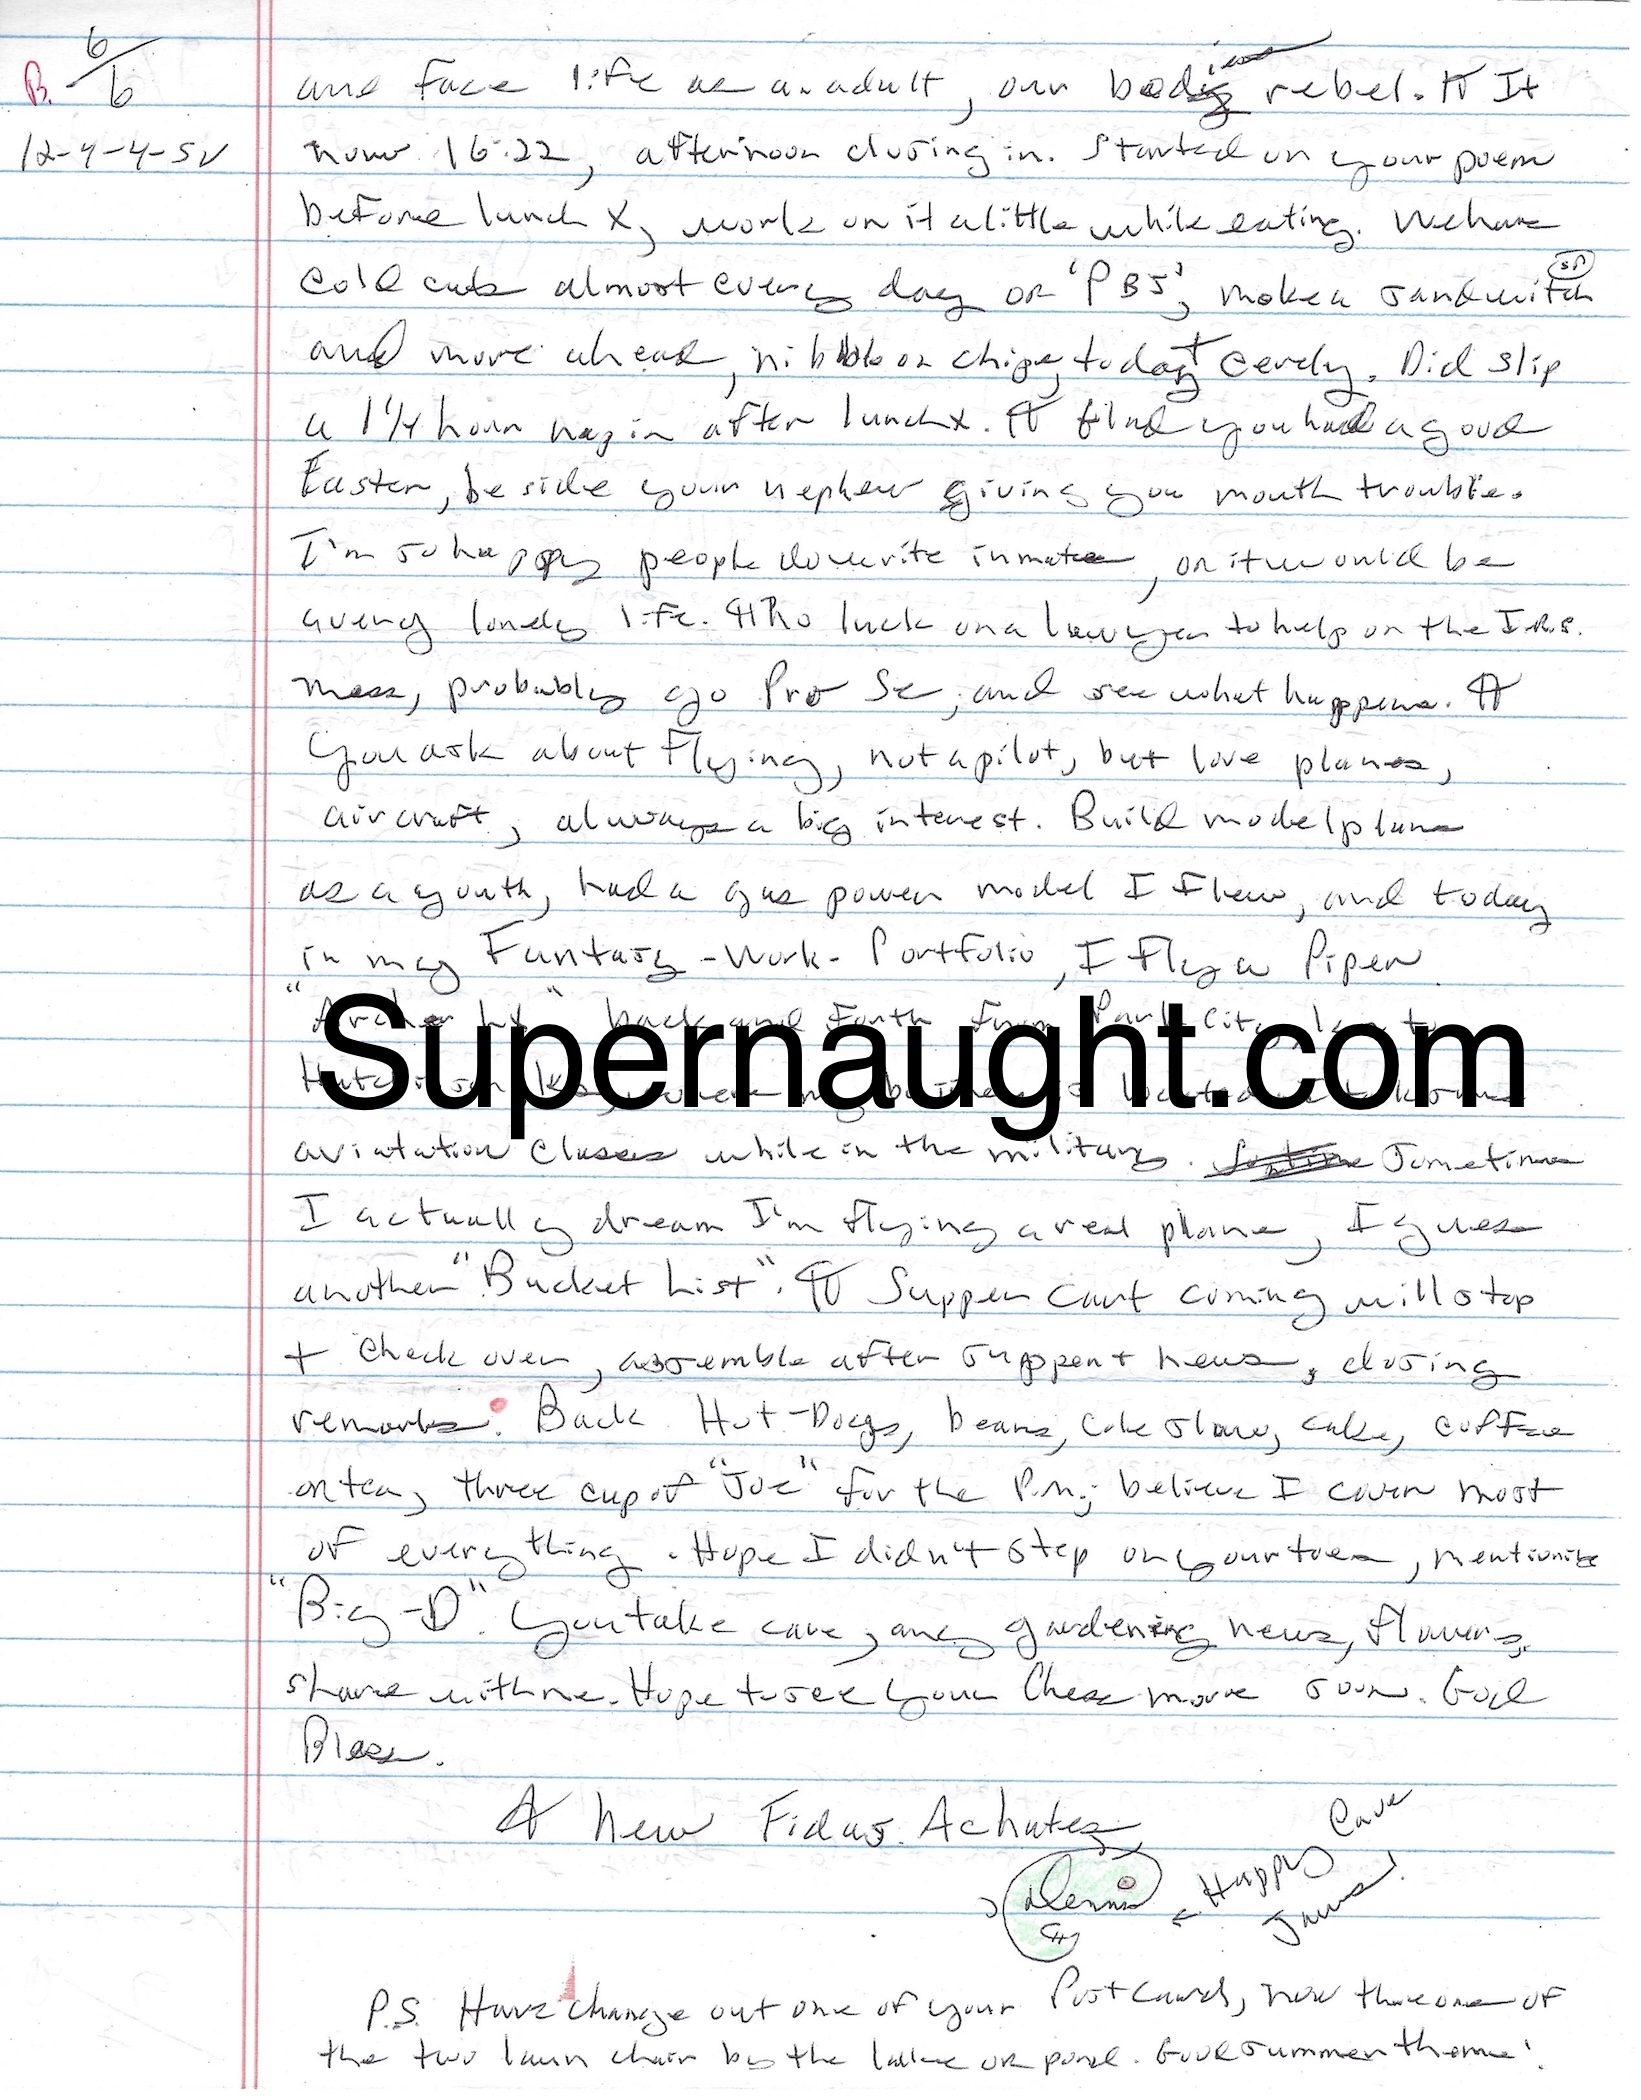 6/6
B.
12-4-4-5V
and face life as an adult, our bodies rebel. ¶ It
now 16:22, afternoon closing in. Started on your poem
before lunch X, work on it a little while eating. We have
cold cuts almost every day or 'PBJ', make a sandwitch (SP)
and more ahead, nibble on chips, today celery. Did slip
a 1¼ hour nap in after lunch X. ¶ glad you had a good
Easter, beside your nephew giving you mouth trouble.
I'm so happy people do write inmates, or it would be
a very lonely life. ¶ No luck on a lawyer to help on the I.R.S.
mess, probably go Pro Se, and see what happens. ¶
You ask about flying, not a pilot, but love planes,
aircraft, always a big interest. Build model plane
as a youth, had a gas power model I flew, and today
in my Fantasy-Work-Portfolio, I fly a Piper
"Archer" back and forth from Park City
Supernaught.com
aviatation classes while in the military. Sometimes
I actually dream I'm flying a real plane, I guess
another "Bucket List". ¶ Supper cart coming will stop
+ check over, assemble after supper + news, closing
remarks. Back Hot-Dogs, beans, cole slaw, cake, coffee
or tea, three cup of "Joe" for the P.M.; believe I cover most
of everything. Hope I didn't step on your toes, mentioning
"Big-D". You take care, any gardening news, flowers,
share with me. Hope to see your Chess move soon. God
Bless.
A New Fidus Achates
Dennis
Happy
Cave
Jaws!
P.S. Have change out one of your Postcards, now the one of
the two lawn chair by the lake or pond. Good summer theme!